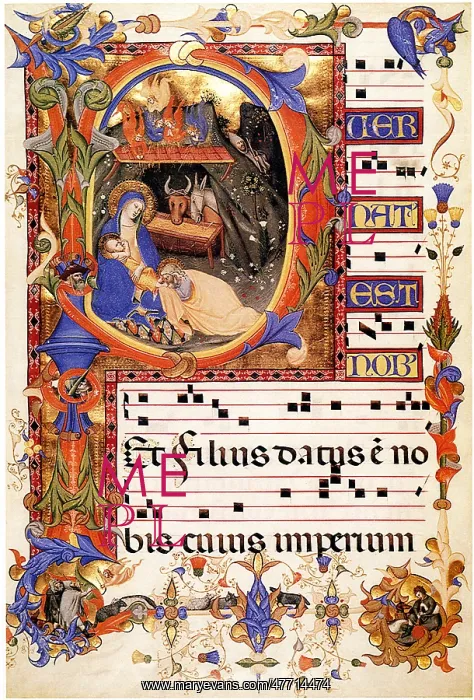 PUER
NAT'
EST
NOB'
Et filius datus ē no
bis cuius imperium
ME
PL
ME
PL
www.maryevans.com/47714474